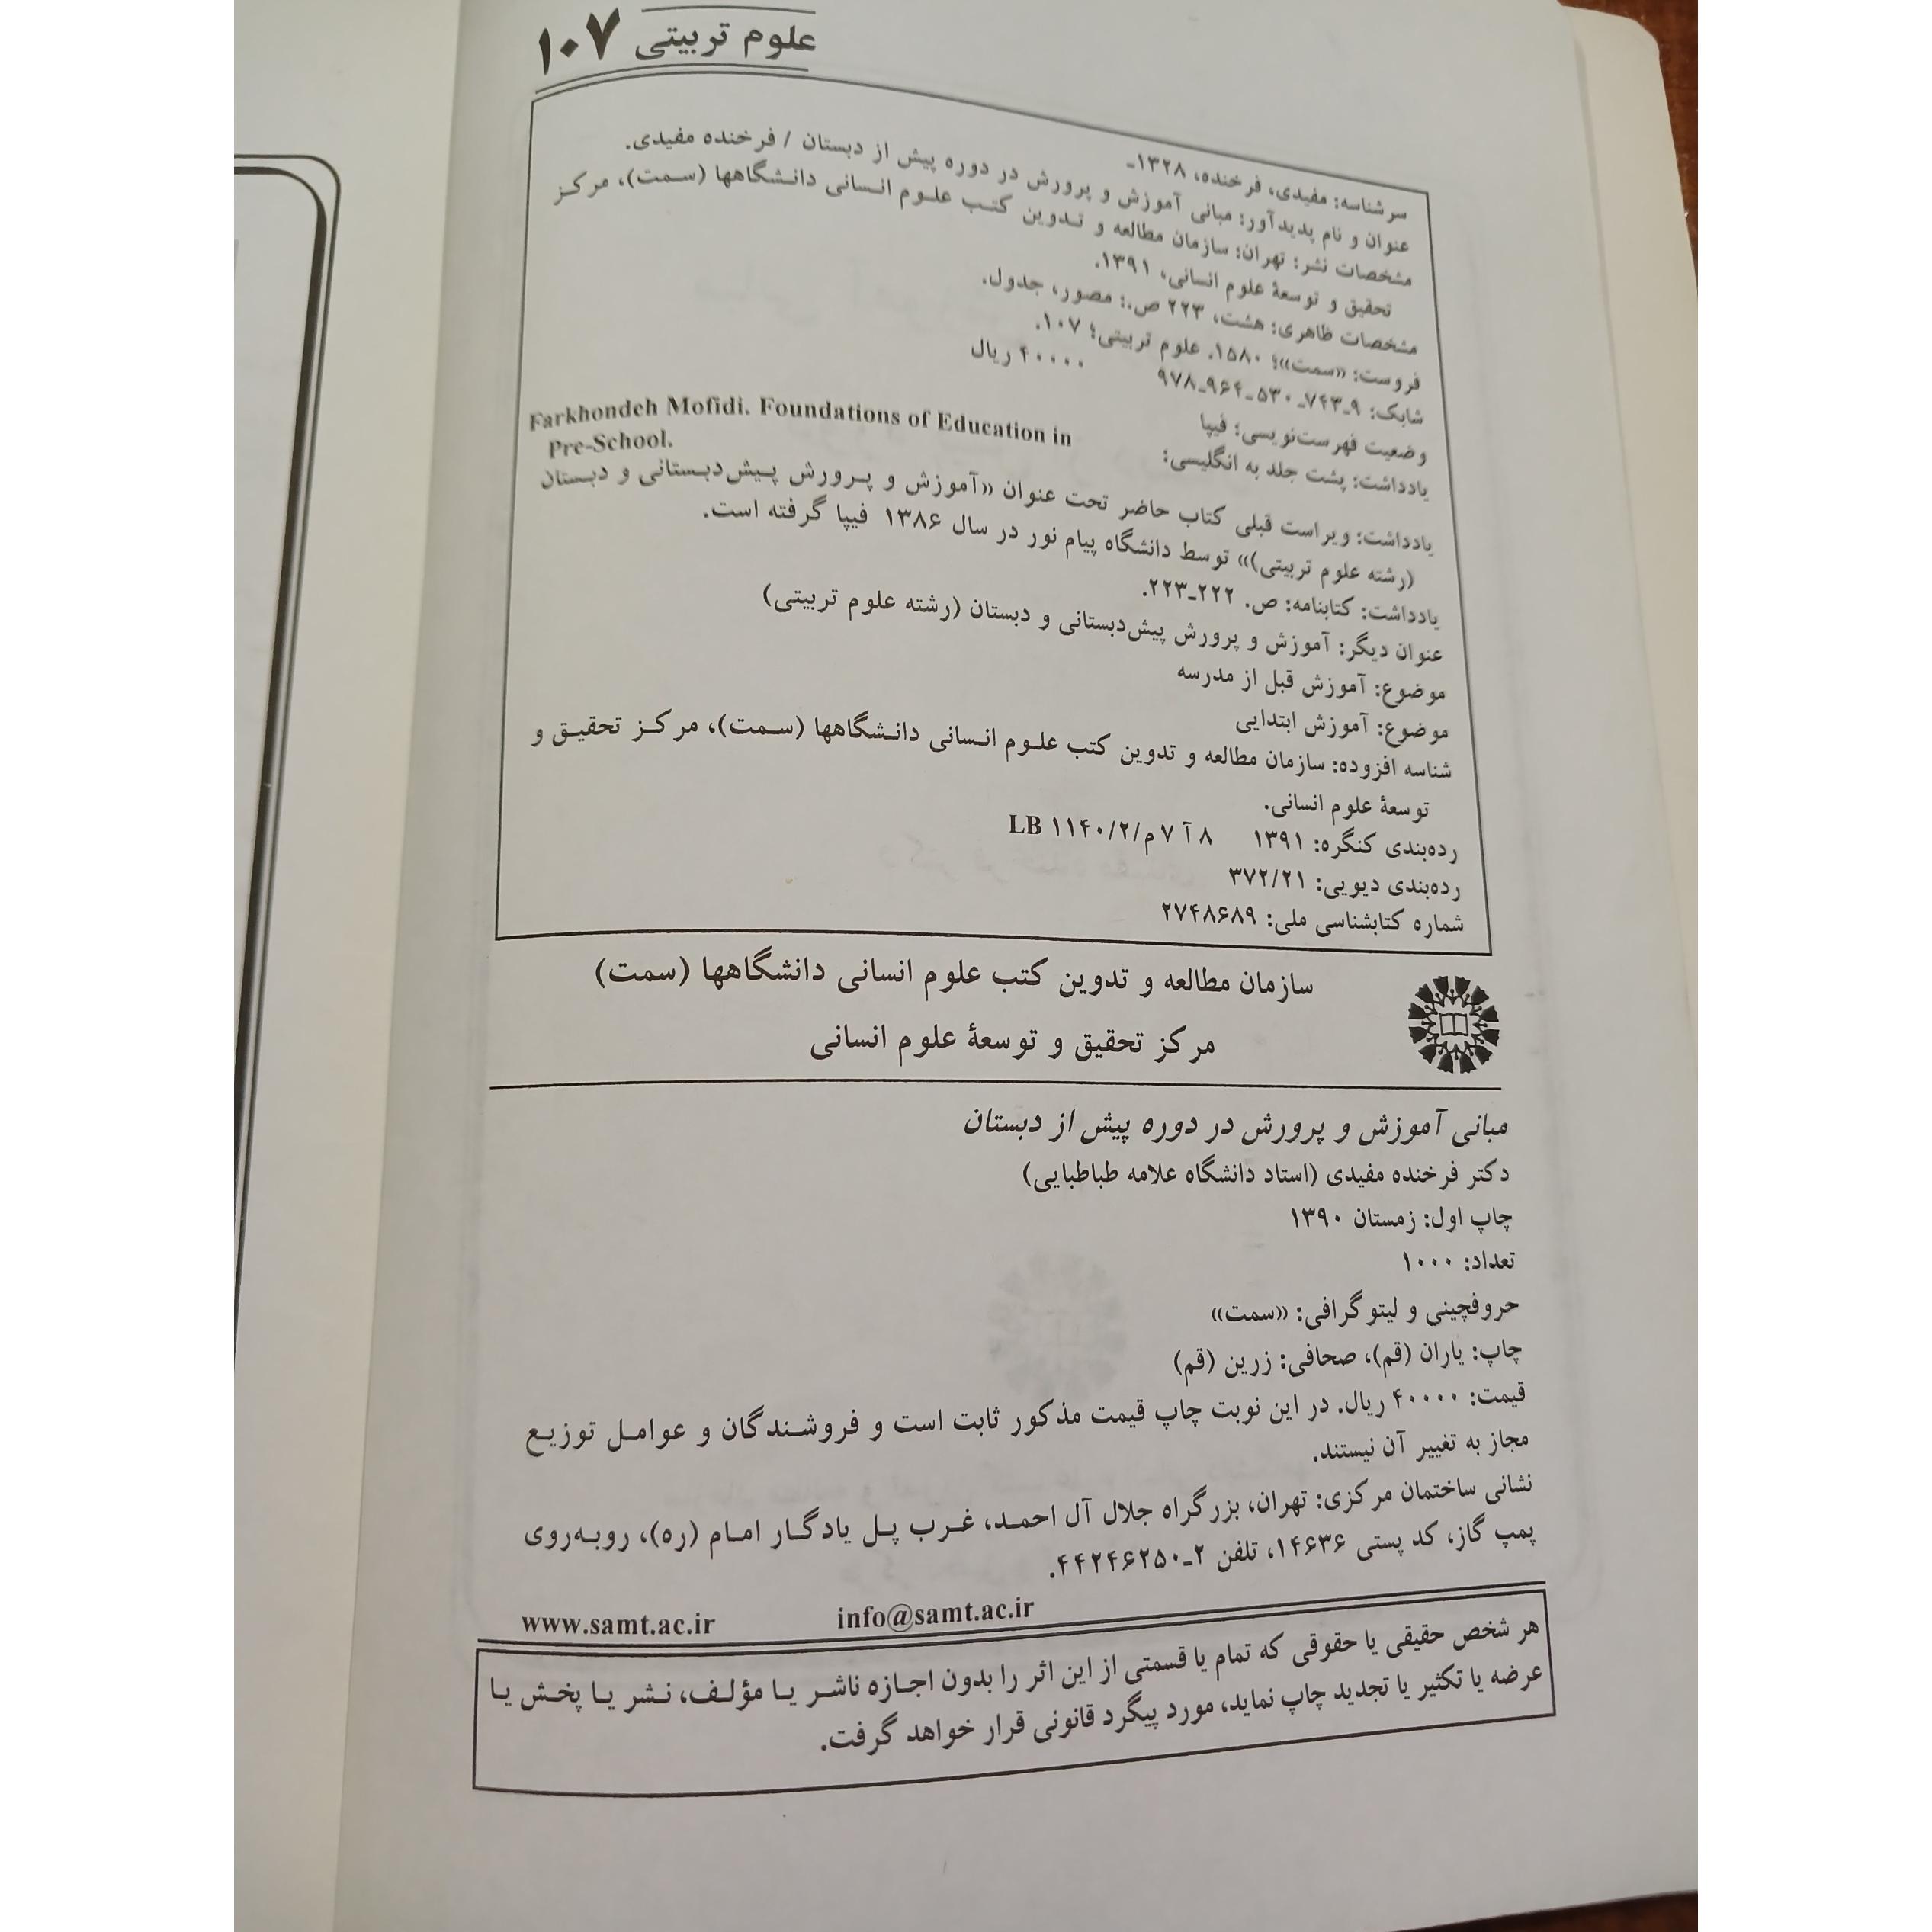 علوم تربیتی ۱۰۷
سرشناسه: مفیدی، فرخنده، ۱۳۲۸ـ
عنوان و نام پدیدآور: مبانی آموزش و پرورش در دوره پیش از دبستان / فرخنده مفیدی.
مشخصات نشر: تهران: سازمان مطالعه و تدوین کتب علوم انسانی دانشگاهها (سمت)، مرکز
تحقیق و توسعهٔ علوم انسانی، ۱۳۹۱.
مشخصات ظاهری: هشت، ۲۲۳ ص.: مصور، جدول.
فروست: «سمت»؛ ۱۵۸۰. علوم تربیتی؛ ۱۰۷.
شابک: ۹ـ۷۴۳ـ۵۳۰ـ۹۶۴ـ۹۷۸ ۴۰۰۰۰ ریال
وضعیت فهرست‌نویسی: فیپا
یادداشت: پشت جلد به انگلیسی: Farkhondeh Mofidi. Foundations of Education in
Pre-School.
یادداشت: ویراست قبلی کتاب حاضر تحت عنوان «آموزش و پرورش پیش‌دبستانی و دبستان
(رشته علوم تربیتی)» توسط دانشگاه پیام نور در سال ۱۳۸۶ فیپا گرفته است.
یادداشت: کتابنامه: ص. ۲۲۲ـ۲۲۳.
عنوان دیگر: آموزش و پرورش پیش‌دبستانی و دبستان (رشته علوم تربیتی)
موضوع: آموزش قبل از مدرسه
موضوع: آموزش ابتدایی
شناسه افزوده: سازمان مطالعه و تدوین کتب علوم انسانی دانشگاهها (سمت)، مرکز تحقیق و
توسعهٔ علوم انسانی.
رده‌بندی کنگره: ۱۳۹۱ ۸ آ ۷ م/۲/۱۱۴۰ LB
رده‌بندی دیویی: ۳۷۲/۲۱
شماره کتابشناسی ملی: ۲۷۴۸۶۸۹
سازمان مطالعه و تدوین کتب علوم انسانی دانشگاهها (سمت)
مرکز تحقیق و توسعهٔ علوم انسانی
مبانی آموزش و پرورش در دوره پیش از دبستان
دکتر فرخنده مفیدی (استاد دانشگاه علامه طباطبایی)
چاپ اول: زمستان ۱۳۹۰
تعداد: ۱۰۰۰
حروفچینی و لیتوگرافی: «سمت»
چاپ: یاران (قم)، صحافی: زرین (قم)
قیمت: ۴۰۰۰۰ ریال. در این نوبت چاپ قیمت مذکور ثابت است و فروشندگان و عوامل توزیع
مجاز به تغییر آن نیستند.
نشانی ساختمان مرکزی: تهران، بزرگراه جلال آل احمد، غرب پل یادگار امام (ره)، روبه‌روی
پمپ گاز، کد پستی ۱۴۶۳۶، تلفن ۲ـ۴۴۲۴۶۲۵۰.
www.samt.ac.ir info@samt.ac.ir
هر شخص حقیقی یا حقوقی که تمام یا قسمتی از این اثر را بدون اجازه ناشر یا مؤلف، نشر یا پخش یا
عرضه یا تکثیر یا تجدید چاپ نماید، مورد پیگرد قانونی قرار خواهد گرفت.